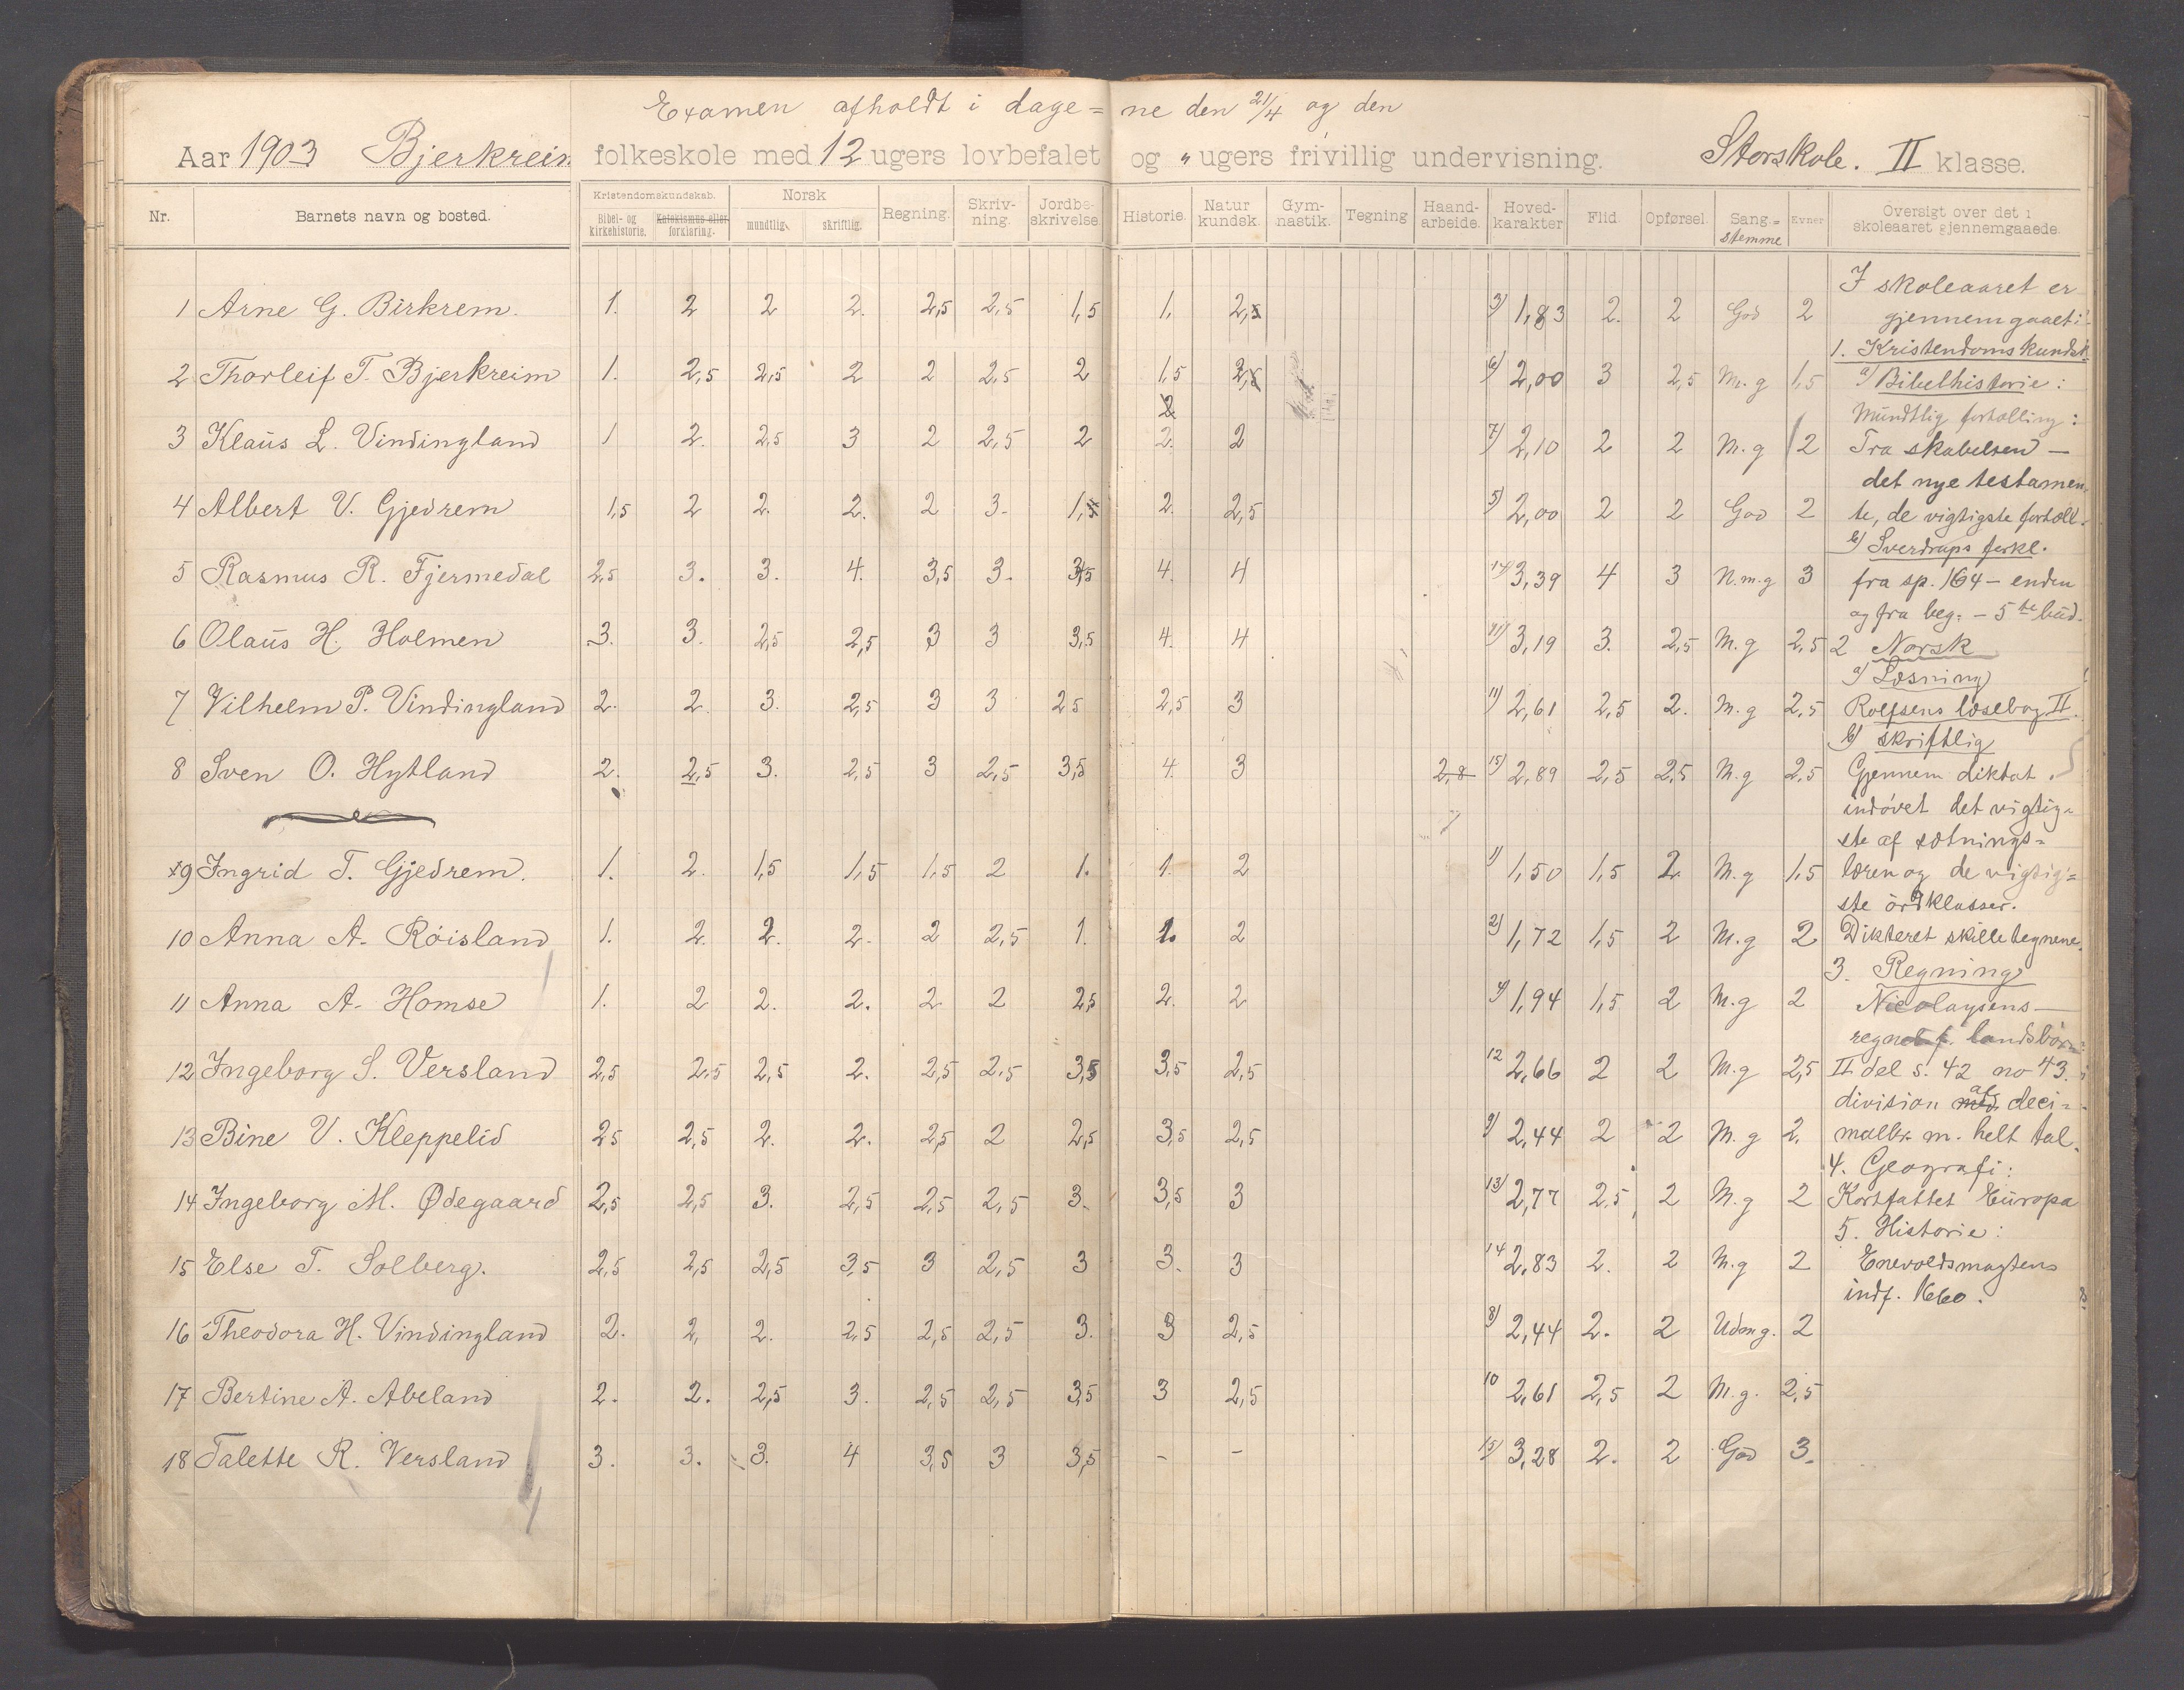 Examen afholdt i dage= ne den 21/4 og den
Aar 1903 Bjerkreim folkeskole med 12 ugers lovbefalet og " ugers frivillig undervisning. Storskole. II klasse.
Nr. Barnets navn og bosted. Kristendomskundskab. Bibel- og kirkehistorie. Katekismus eller forklaring. Norsk mundtlig. skriftlig. Regning. Skriv-ning. Jordbe-skrivelse. Historie. Natur kundsk. Gym-nastik. Tegning Haand-arbeide. Hoved-karakter Flid. Opførsel. Sang.= stemme Evner Oversigt over det i skoleaaret gjennemgaaede.
1 Arne G. Birkrem. 1. 2 2 2. 2,5 2,5 1,5 1, 2,5 3) 1,83 2. 2 God 2
2 Thorleif T. Bjerkreim 1. 2,5 2,5 2 2 2,5 2 1,5 2,5 6) 2,00 3 2,5 M.g 1,5
3 Klaus L. Vindingland 1 2. 2,5 3 2 2,5 2 2. 2 7) 2,10 2 2 M.g 2
4 Albert V. Gjedrem 1,5 2 2. 2. 2 3. 1,5 2. 2,5 5) 2,00 2 2 God 2
5 Rasmus R. Fjermedal 2,5 3. 3. 4. 3,5 3. 3,5 4. 4 17) 3,39 4 3 N.m.g 3
6 Olaus H. Holmen 3. 3. 2,5 2,5 3 3 3,5 4. 4 3,19 3. 2,5 M.g 2,5
7 Vilhelm P. Vindingland 2. 2. 3. 2,5 3 3 2 5 2,5 3 11) 2,61 2,5 2. M.g 2,5
8 Sven O. Hytland 2. 2,5 3. 2,5 3 2,5 3,5 4. 3 2,8 15) 2,89 2,5 2,5 M.g 2,5
9 Ingrid T. Gjedrem. 1. 2. 1,5 1,5 1,5 2 1. 1. 2 1) 1,50 1,5 2 M.g 1,5
10 Anna A. Röisland 1. 2. 2. 2. 2 2,5 1. 1. 2 2) 1,72 1,5 2 M.g 2
11 Anna A. Homse 1. 2 2. 2. 2 2 2,5 2. 2 4) 1,94 1,5 2 M.g 2
12 Ingeborg S. Versland 2,5 2,5 2,5 2. 2,5 2,5 3,5 3,5 2,5 12 2,66 2 2 M.g 2,5
13 Bine V. Kleppelid 2 5 2,5 2. 2. 2,5 2 2,5 3,5 2,5 9) 2,44 2 2 M.g 2.
14 Ingeborg M. Ødegaard 2,5 2,5 3. 2,5 2,5 2,5 3. 3,5 3 13) 2,77 2,5 2 M.g 2
15 Else T. Solberg. 2,5 2,5 2,5 3,5 3 2,5 3 3. 3 14 2,83 2. 2 M.g 2
16 Theodora H. Vindingland 2. 2, 2. 2,5 2,5 2,5 3. 3 2,5 8) 2,44 2. 2 Udm g. 2
17 Bertine A. Abeland 2. 2. 2,5 3. 2,5 2,5 3,5 3 2,5 10 2,61 2,5 2 M.g. 2,5
18 Talette R. Versland 3. 3. 3. 4 3,5 3 3,5 - - 15) 3,28 2. 2 God 3.
I skoleaaret er
gjennemgaaet:
1. Kristendomskundsk.
a) Bibelhistorie:
Mundtlig fortælling:
Fra skabelsen —
det nye testamen-
te, de vigtigste fortæll.
b) Sverdrups forkl.
fra sp. 164 - enden
og fra beg. - 5te bud.
2 Norsk
a) Læsning
Rolfsens læsebog II.
b) skriftlig
Gjennem diktat
indövet det vigtig-
ste af sætnings=
læren og de vigtig=
ste ordklasser.
Dikteret skilletegnene.
3. Regning
Nicolaysens —
regneb f. landsbörn
II del s. 42 no 43.
division af deci-
malbr. m. helt tal.
4. Geografi:
Kortfattet Europa
5. Historie:
Enevoldsmagtens
indf. 1660.